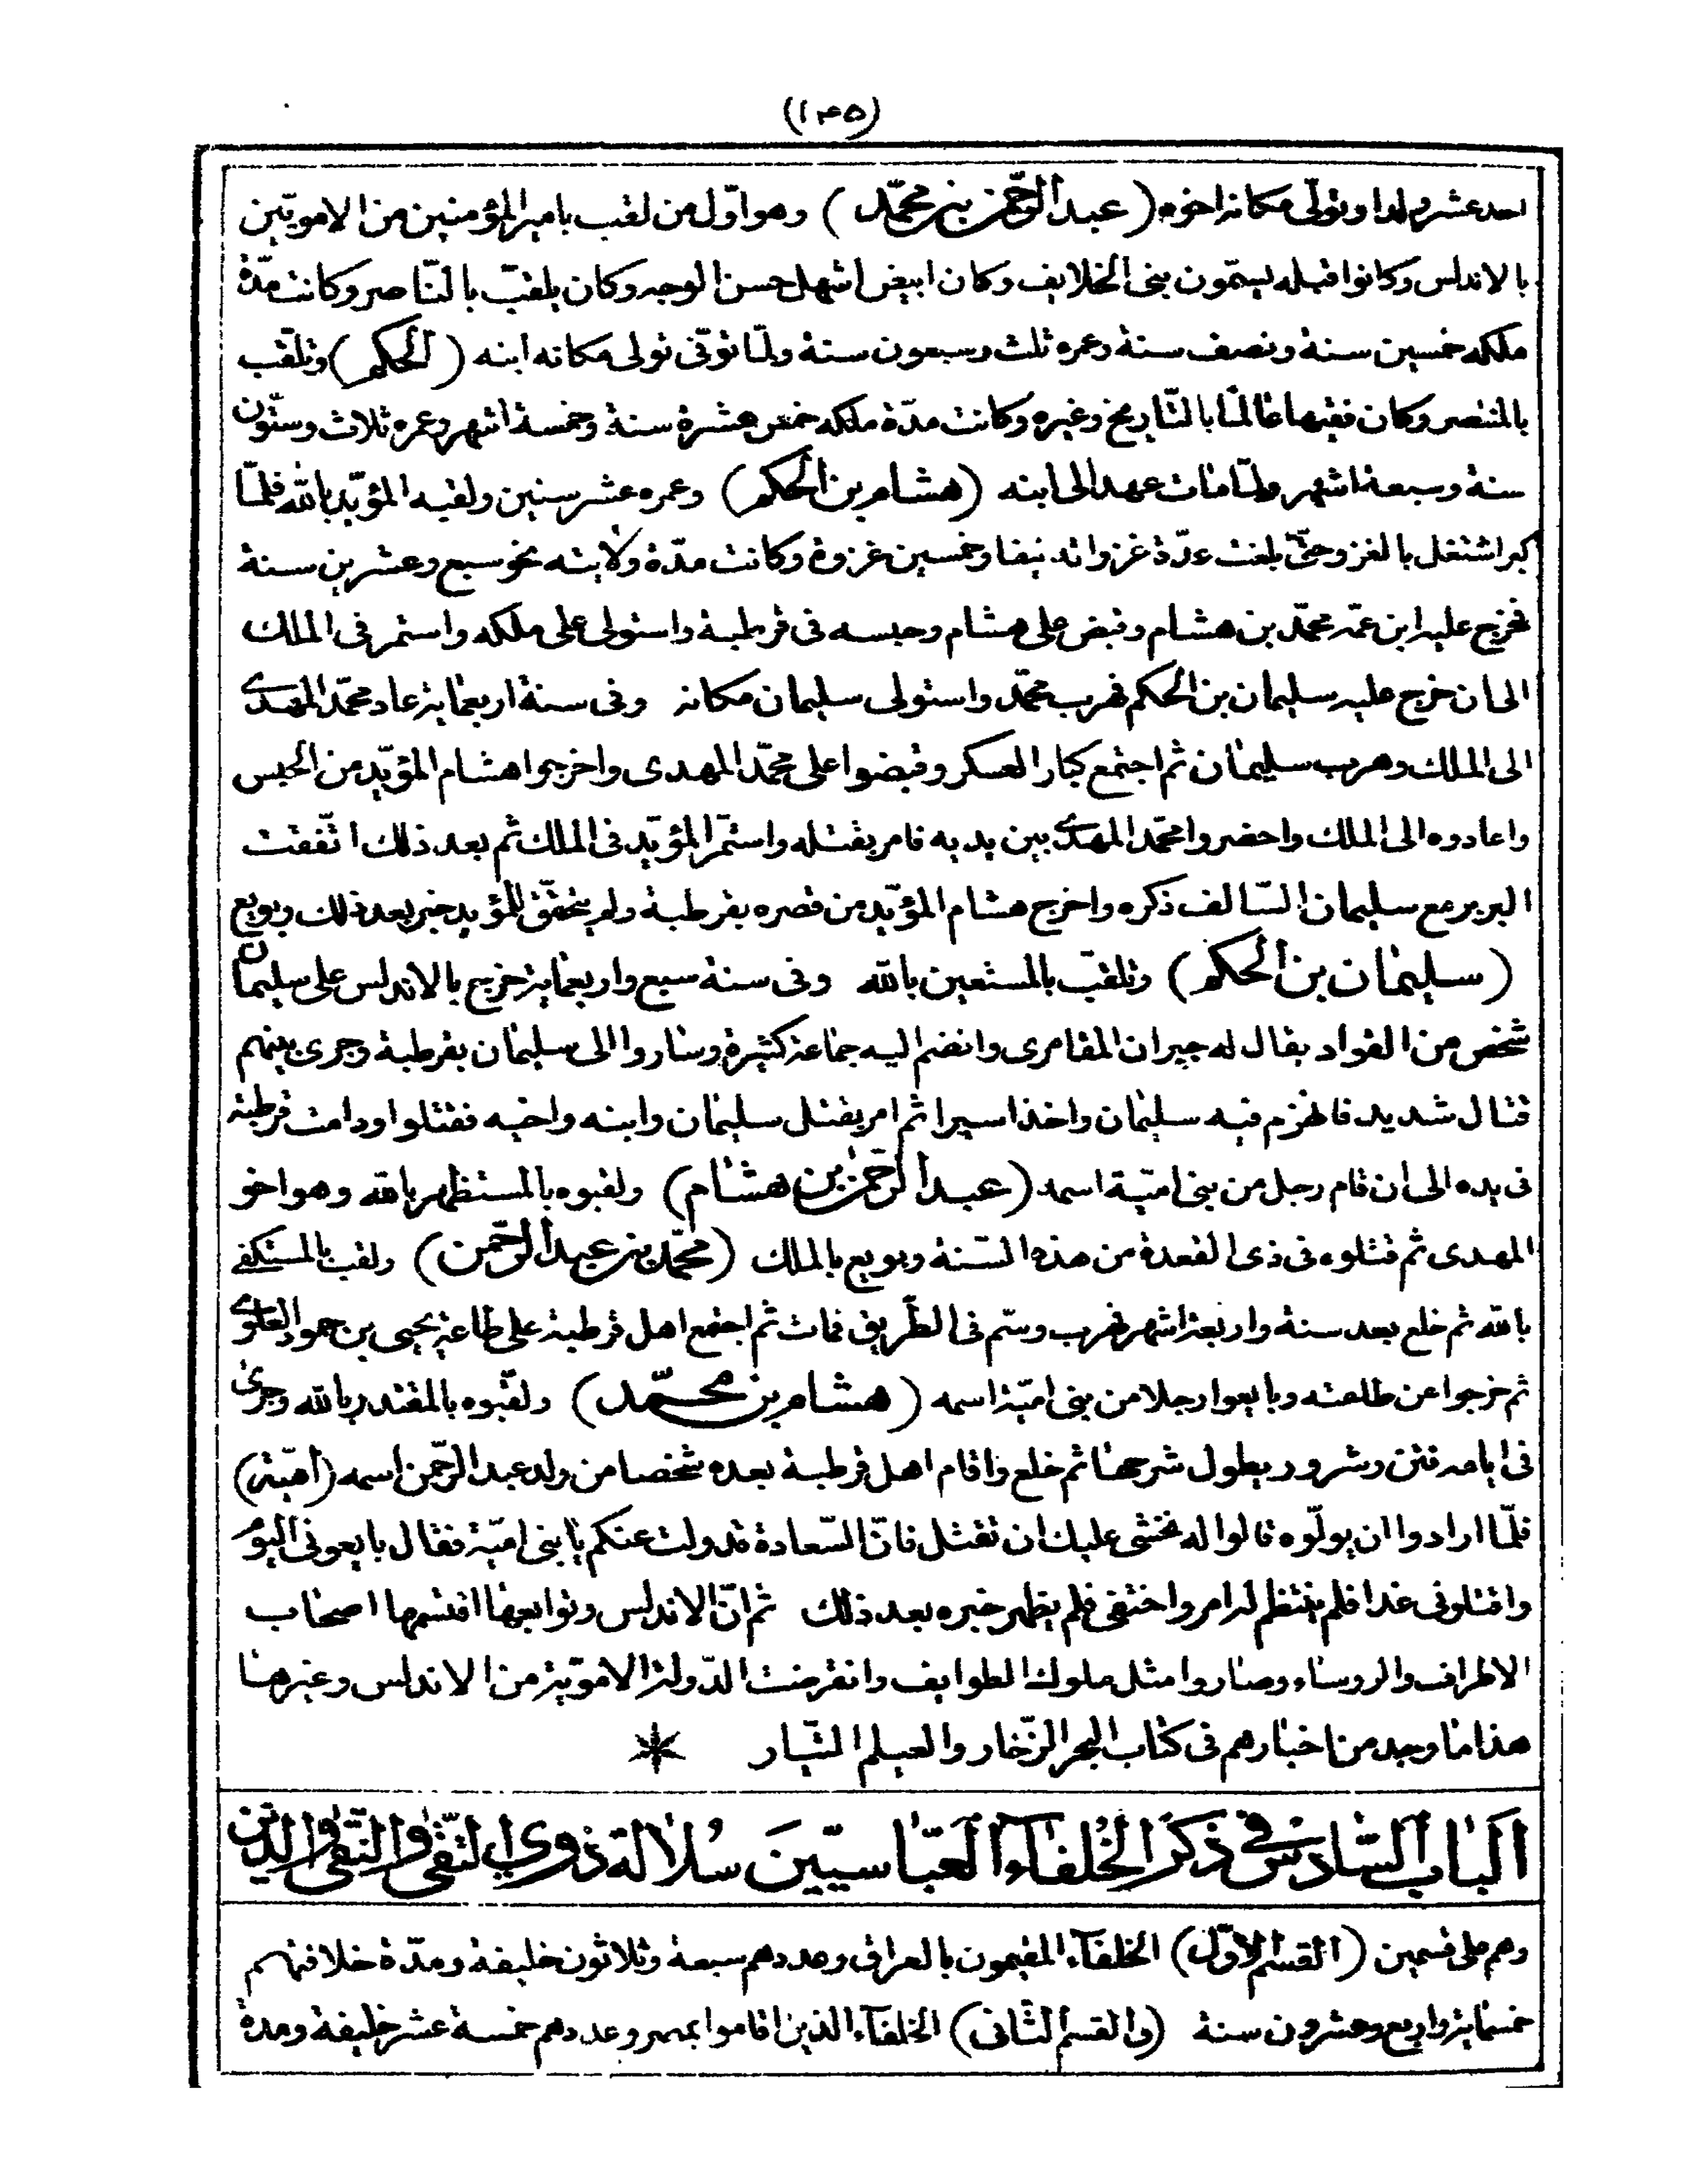 (١٤٥)
احد عشر ولدا وتولّى مكانه اخوه (عبد الرحمن بن محمّد) وهو اوّل من لقب بامير المؤمنين من الامويّين
بالاندلس وكانوا قبله يسمّون بنى الخلايف وكان ابيض اشهل حسن الوجه وكان يلقّب بالنّاصر وكانت مدّة
ملكه خمسين سنة ونصف سنة وعمره ثلث وسبعون سنة ولمّا توفّى تولى مكانه ابنه (الحكم) وتلقّب
بالمنتصر وكان فقيها عالما بالتّاريخ وغيره وكانت مدّة ملكه خمس عشرة سنة وخمسة اشهر وعمره ثلاث وستّون
سنة وسبعة اشهر ولمّا مات عهد الى ابنه (هشام بن الحكم) وعمره عشر سنين ولقبه المؤيّد بالله فلمّا
كبر اشتغل بالغزو حتّى بلغت عدّة غزواته نيفا وخمسين غزوة وكانت مدّة ولايته نحو سبع وعشرين سنة
فخرج عليه ابن عمّه محمّد بن هشام وقبض على هشام وحبسه فى قرطبة واستولى على ملكه واستمر فى الملك
الى ان خرج عليه سليمان بن الحكم فهرب محمّد واستولى سليمان مكانه وفى سنة اربعماية عاد محمّد المهدى
الى الملك وهرب سليمان ثم اجتمع كبار العسكر وقبضوا على محمّد المهدى واخرجوا هشام المؤيّد من الحبس
واعادوه الى الملك واحضروا محمّد المهدى بين يديه فامر بقتله واستمّر المؤيّد فى الملك ثم بعد ذلك اتّفقت
البربر مع سليمان السّالف ذكره واخرج هشام المؤيّد من قصره بقرطبة ولم يتحقّق للمؤيد خبر بعد ذلك وبويع
(سليمان بن الحكم) وتلقّب بالمستعين بالله وفى سنة سبع واربعماية خرج بالاندلس على سليمان
شخص من القواد يقال له جيران المقامرى وانضم اليه جماعة كثيرة وساروا الى سليمان بقرطبة وجرى بينهم
قتال شديد فانهزم فيه سليمان واخذ اسيرا ثم امر بقتل سليمان وابنه واخيه فقتلوا ودامت قرطبة
فى يده الى ان قام رجل من بنى اميّة اسمه (عبد الرحمن بن هشام) ولقبوه بالمستظهر بالله وهو اخو
المهدى ثم قتلوه فى ذى القعدة من هذه السّنة وبويع بالملك (محمّد بن عبد الرحمن) ولقب بالمستكفى
بالله ثم خلع بعد سنة واربعة اشهر فهرب وسّم فى الطّريق فمات ثم اجتمع اهل قرطبة على طاعة يحيى بن حمود العلوى
ثم خرجوا عن طاعته وبايعوا رجلا من بنى اميّة اسمه (هشام بن محمّد) ولقّبوه بالمقتدر بالله وجرى
فى ايامه فتن وشرور يطول شرحها ثم خلع واقام اهل قرطبة بعده شخصا من ولد عبد الرّحمن اسمه (اميّة)
فلمّا ارادوا ان يولّوه قالوا له نخشى عليك ان تقتل فانّ السّعادة قد ولت عنكم يا بنى اميّة فقال بايعونى اليوم
واقتلونى غدا فلم ينتظم له امر واختفى فلم يظهر خبره بعد ذلك ثم انّ الاندلس وتوابعها اقتسمها اصحاب
الاطراف والروساء وصاروا مثل ملوك الطوايف وانقرضت الدّولة الامويّة من الاندلس وغيرها
هذا ما وجد من اخبارهم فى كتاب البحر الزّخار والعيلم التيّار
الباب السّادس فى ذكر الخلفآء العبّاسيّين سلالة ذوى التقى والنقى والدين
وهم على قسمين (القسم الاوّل) الخلفآء المقيمون بالعراق وعددهم سبعة وثلاثون خليفة ومدّة خلافتهم
خمسماية واربع وعشرون سنة (والقسم الثانى) الخلفآء الذين اقاموا بمصر وعددهم خمسة عشر خليفة ومدة